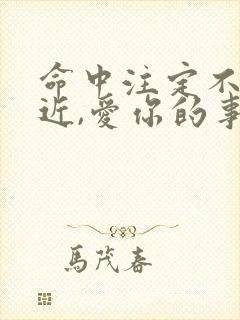 命中注定不
近,愛你的事
馬茂春